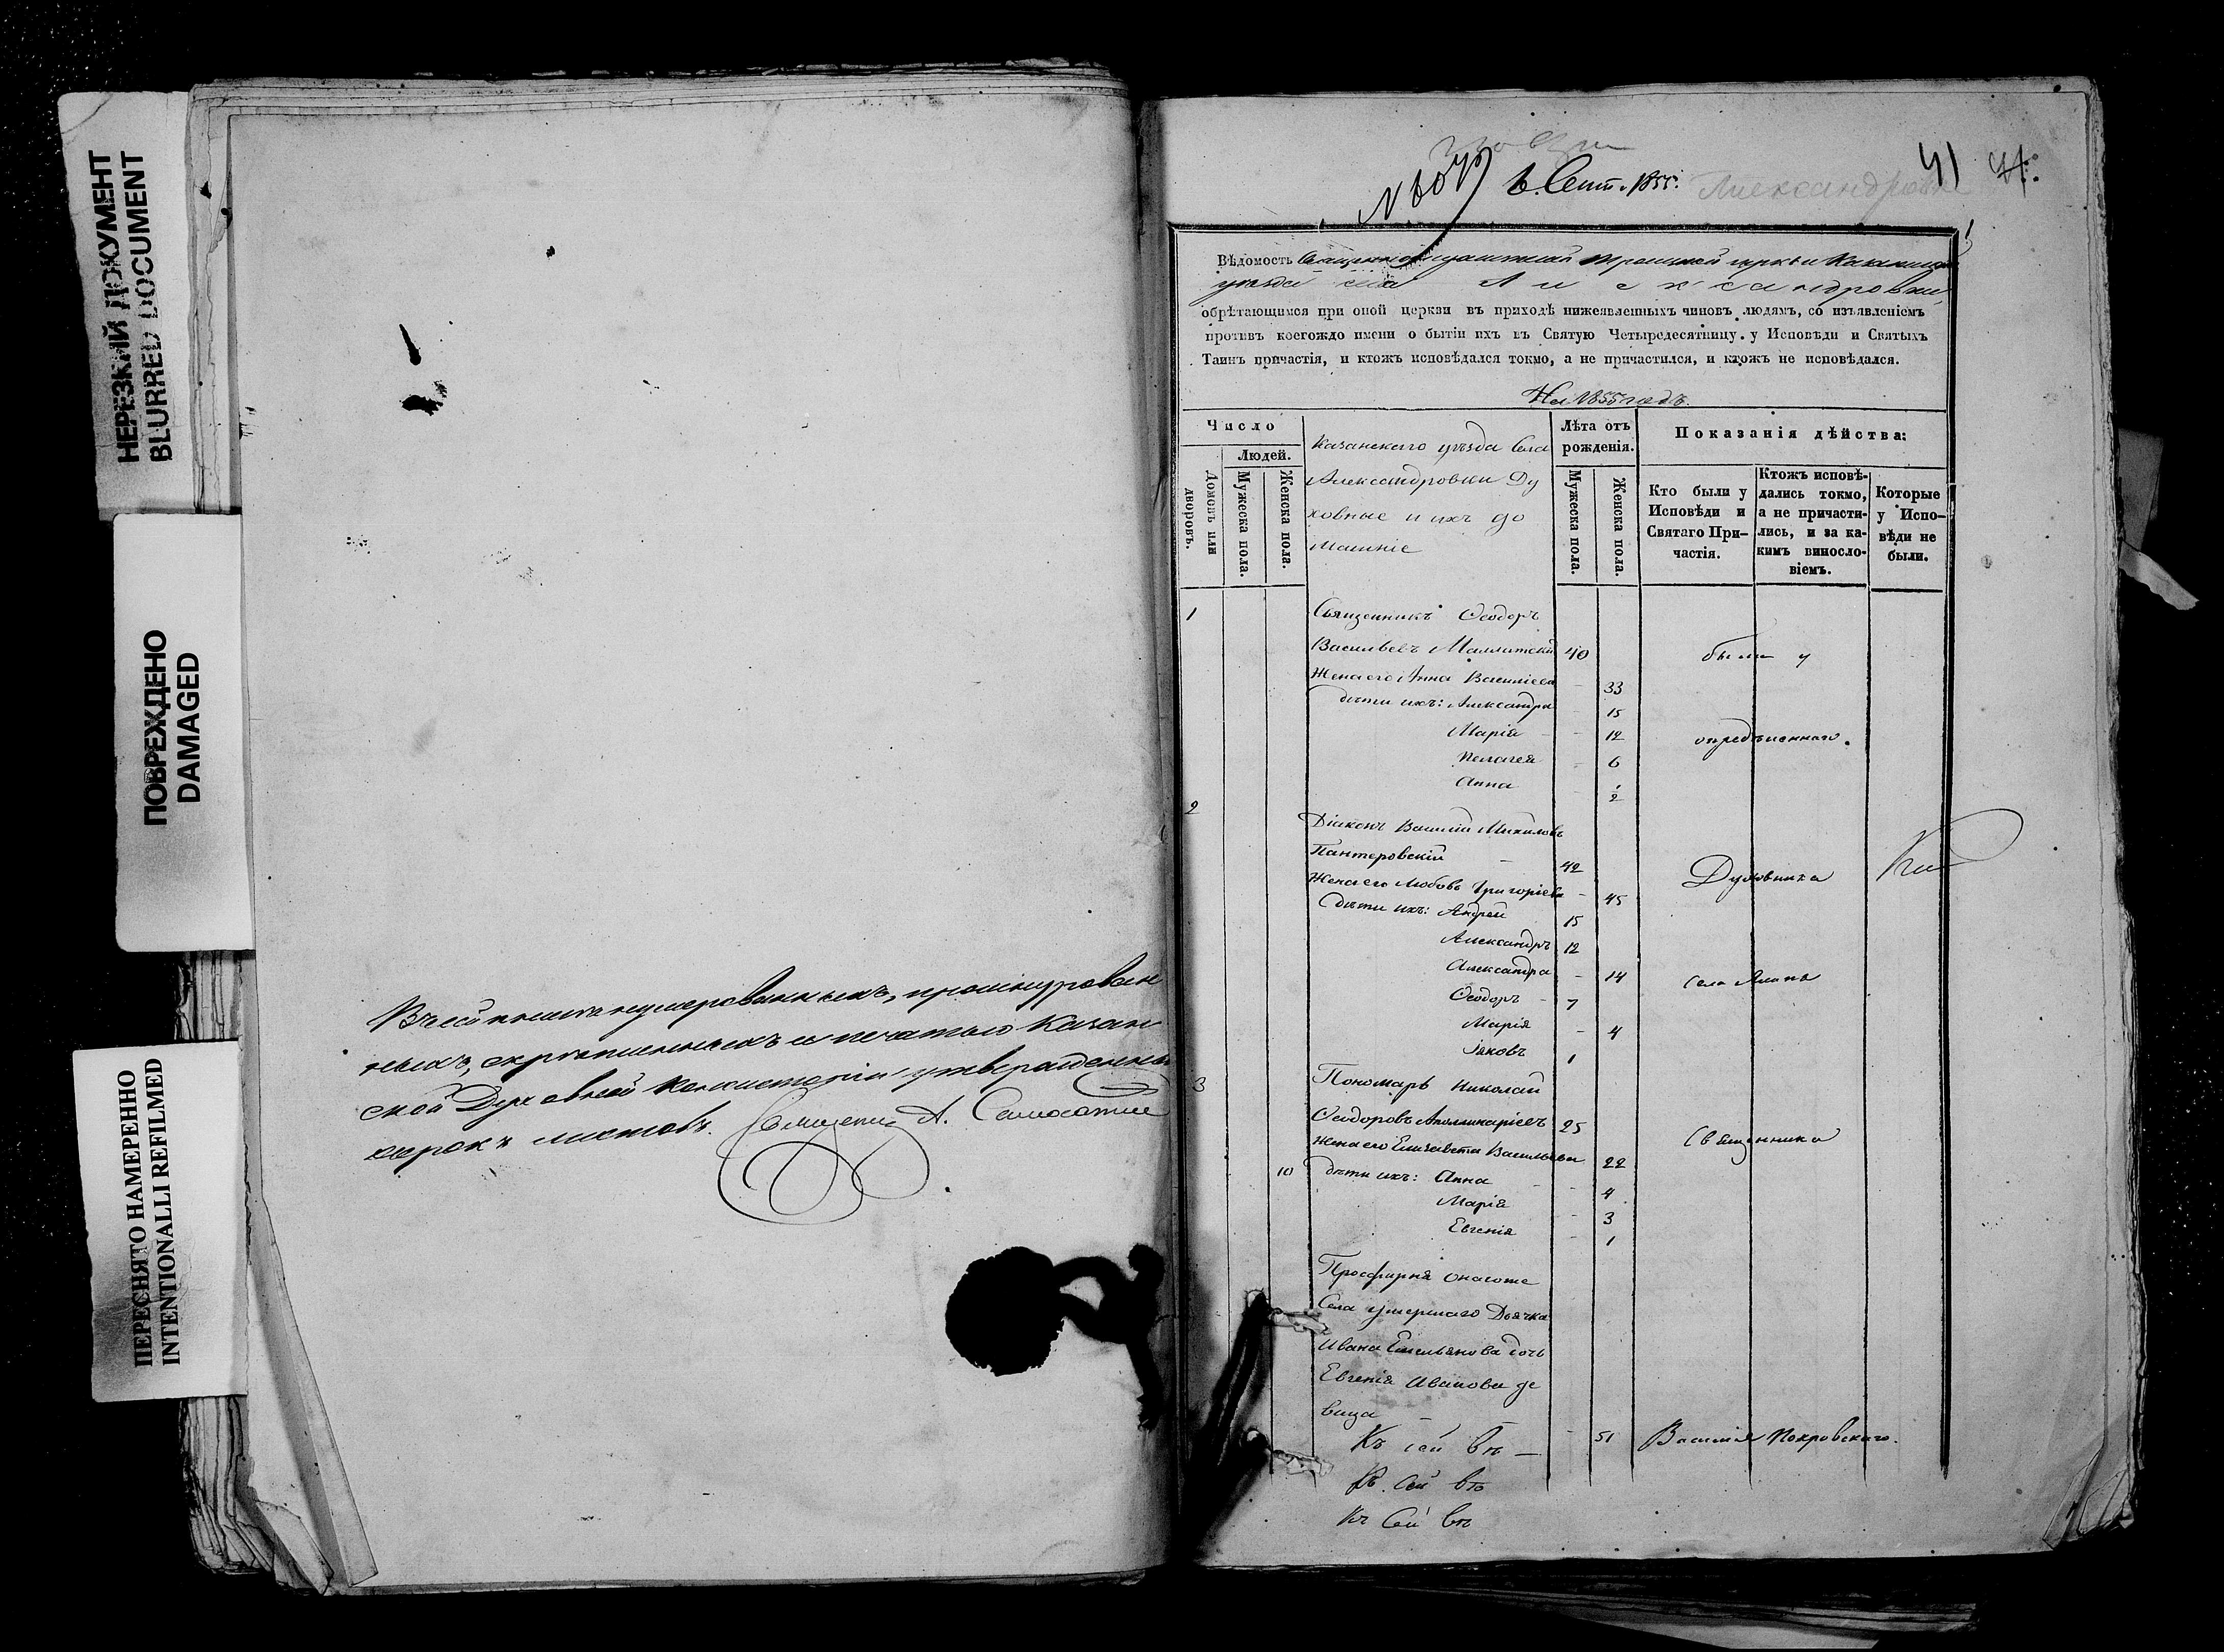 НЕРЕЗКИЙ ДОКУМЕНТ
BLURRED DOCUMENT
ПОВРЕЖДЕНО
DAMAGED
ПЕРЕСНЯТО НАМЕРЕННО
INTENTIONALLI REFILMED
Въ сей книгѣ нумерованныхъ, прошнурован
ныхъ, скрѣпленныхъ и печатью Казан
ской Духовной Консисторіи утвержденныхъ
сорокъ листовъ. Священ. А.
6. Сент. 1855. Александровка 41
Вѣдомость Троицкой церкви
уѣзда села Александровки,
обрѣтающимся при оной церкви въ приходѣ нижеявленныхъ чиновъ людямъ, со изъявленіемъ
противъ коегождо имени о бытіи ихъ въ Святую Четыредесятницу. у Исповѣди и Святыхъ
Таинъ причастія, и ктожъ исповѣдался токмо, а не причастился, и ктожъ не исповѣдался.
На 1855 годъ.
Число
Людей.
Домовъ или дворовъ.
Мужеска пола.
Женска пола.
Казанскаго уѣзда Села
Александровки Ду
ховные и ихъ до
машніе
Лѣта отъ
рожденія.
Мужеска пола.
Женска пола.
Показанія дѣйства:
Кто были у
Исповѣди и
Святаго При-
частія.
Ктожъ исповѣ-
дались токмо,
а не причасти-
лись, и за ка-
кимъ винosло-
віемъ.
Которые
у Испо-
вѣди не
были.
1 Священникъ Ѳеодоръ
Васильевъ 40 были у
Жена его Анна Василіева - 33
дѣти ихъ: Александра - 15
Марія - 12 опредѣленнаго
Пелагея - 6
Анна - 1/2
2
Діаконъ Василій Михаиловъ
Пантеровскій - 42 Духовника
Жена его Любовь Григоріева - 45
Дѣти ихъ: Андрей 15
Александръ 12
Александра - 14 села
Ѳеодоръ - 7
Марія - 4
Іаковъ 1
3 Пономарь Николай
Ѳеодоровъ Аполлинаріевъ 25 Священника
Жена его Елизавета Васильева 22
10 дѣти ихъ: Анна - 4
Марія - 3
Евгенія - 1
Просфирня онагоже
Села умершаго Дьячка
Ивана Емельянова дочь
Евгенія Иванова дѣ
вица - - 51 Василія Покровскаго.
Къ сей вѣ-
Къ сей вѣ
Къ сей вѣ